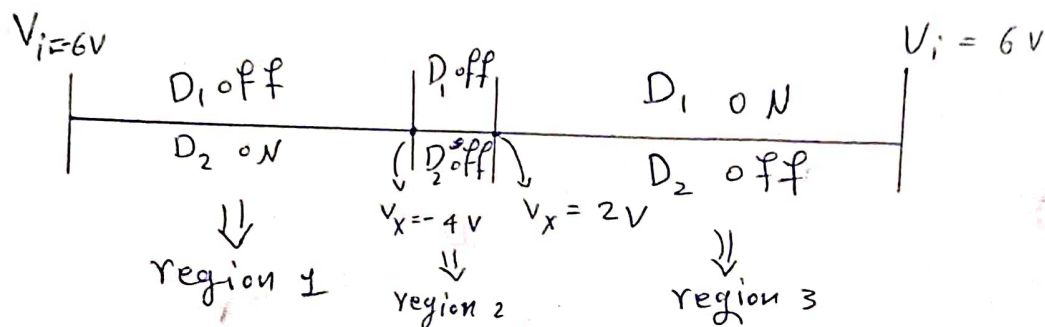 Vi=-6V
Vi = 6V
D1 off
D1 off
D1 ON
D2 ON
D2 off
D2 off
Vx=-4V
Vx = 2V
⇓
⇓
⇓
region 1
region 2
region 3